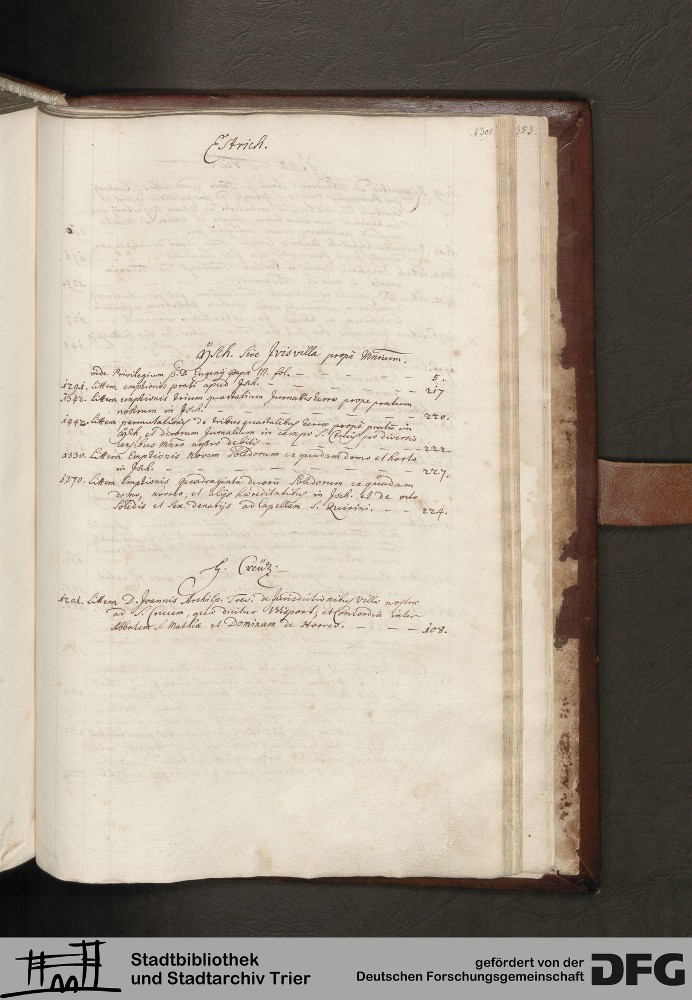 Estrich.
1308
383.
Ÿsch. sive Ivisvilla prope Mnrium.
vide Privilegium S. D. Eugeny Papæ III. fol. — — — — 5.
1291. Littera emptionis prati apud Isch. — — — — — 217
1342. Littera emptionis trium quartalium Jurnalis terræ prope pratum
nostrum in Isch. — — — — — — 220.
Littera permutationis de tribus quartalibus terræ prope pratu in
Ÿsch, et duorum Jurnalium in campo S. Crucis pro diversis
censibus Mnrio nostro debitis — — — — — 222
1330. Littera Emptionis novem Solidorum ex quadam domo et horto
in Isch. — — — — — — — 227.
1370. Littera Emptionis Quadraginta duorum Solidorum ex quadam
domo, horto, et alijs hæreditatibus in Isch. et de octo
Solidis et sex denarijs ad Capellam S. Quirini. — — 224.
H. Creütz.
Littera D. Joannis Archiep. Trev. de Jurisdictionibus villæ nostræ
ad S. Crucem, quæ dicitur Wisport, et Concordia inter
Abbatem S. Mathiæ et Dominam de Horreo. — — — — 108.
Stadtbibliothek
und Stadtarchiv Trier
gefördert von der
Deutschen Forschungsgemeinschaft
DFG